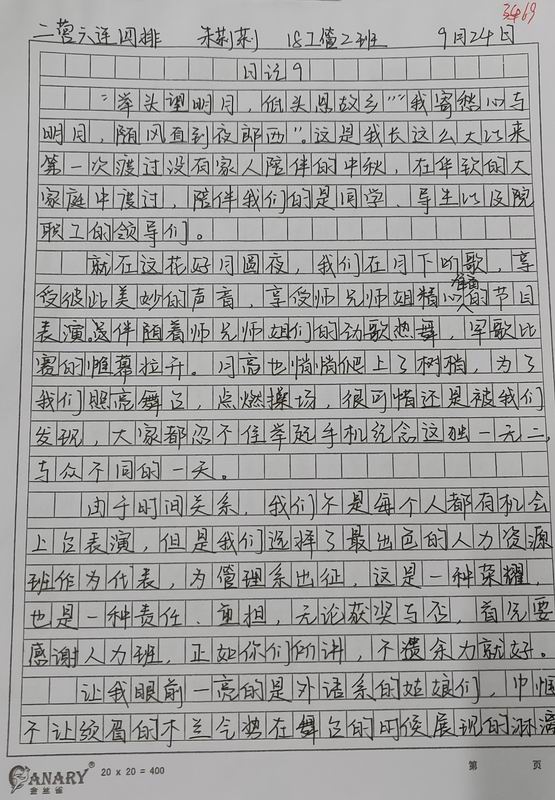 3469
二营六连四排 朱荆莉 18工管2班 9月24日
日记9
“举头望明月，低头思故乡”“我寄愁心与
明月，随风直到夜郎西”。这是我长这么大以来
第一次渡过没有家人陪伴的中秋，在华软的大
家庭中渡过，陪伴我们的是同学、导生以及院
职工的领导们。
就在这花好月圆夜，我们在月下听歌，享
受彼此美妙的声音，享受师兄师姐精心准备的节目
表演。伴随着师兄师姐们的劲歌热舞，军歌比
赛的帷幕拉开。月亮也悄悄爬上了树梢，为了
我们照亮舞台，点燃操场，很可惜还是被我们
发现，大家都忍不住举起手机纪念这独一无二，
与众不同的一天。
由于时间关系，我们不是每个人都有机会
上台表演，但是我们选择了最出色的人力资源
班作为代表，为管理系出征，这是一种荣耀，
也是一种责任、重担，无论获奖与否，首先要
感谢人力班，正如你们所讲，不遗余力就好。
让我眼前一亮的是外语系的姑娘们，巾帼
不让须眉的木兰气势在舞台的时候展现的淋漓
CANARY® 金丝雀 20 x 20 = 400 第 页